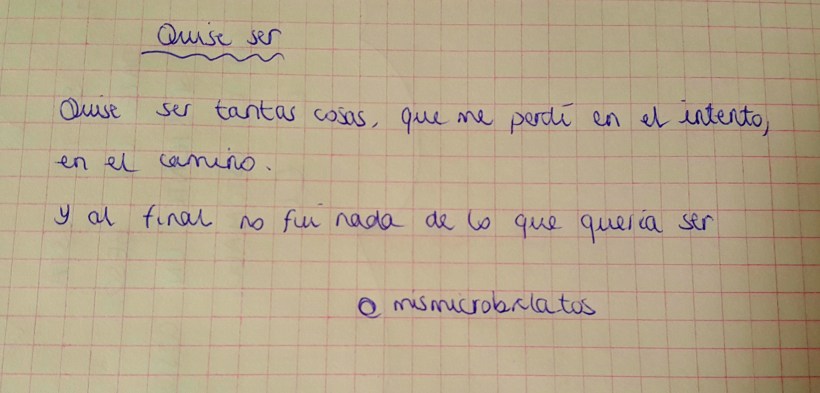 Quise ser
Quise ser tantas cosas, que me perdí en el intento,
en el camino.
Y al final no fui nada de lo que quería ser
@mismicrorrelatos